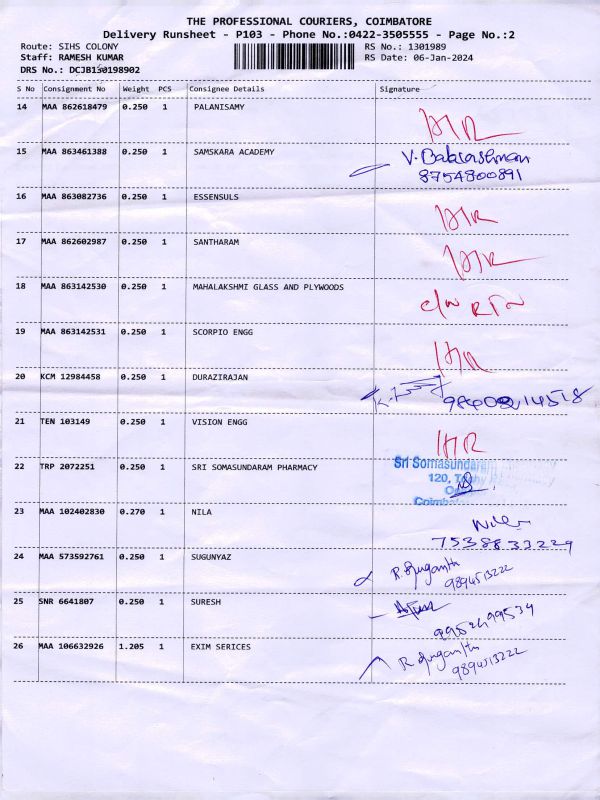 THE PROFESSIONAL COURIERS, COIMBATORE
Delivery Runsheet - P103 - Phone No.:0422-3505555 - Page No.:2
Route: SIHS COLONY RS No.: 1301989
Staff: RAMESH KUMAR RS Date: 06-Jan-2024
DRS No.: DCJB130198902
S No Consignment No Weight PCS Consignee Details Signature
14 MAA 862618479 0.250 1 PALANISAMY
15 MAA 863461388 0.250 1 SAMSKARA ACADEMY
8754800891
16 MAA 863082736 0.250 1 ESSENSULS
17 MAA 862602987 0.250 1 SANTHARAM
18 MAA 863142530 0.250 1 MAHALAKSHMI GLASS AND PLYWOODS
19 MAA 863142531 0.250 1 SCORPIO ENGG
20 KCM 12984458 0.250 1 DURAZIRAJAN
21 TEN 103149 0.250 1 VISION ENGG
22 TRP 2072251 0.250 1 SRI SOMASUNDARAM PHARMACY
Sri Somasundaram
120,
23 MAA 102402830 0.270 1 NILA
7538833229
24 MAA 573592761 0.250 1 SUGUNYAZ
9894513222
25 SNR 6641807 0.250 1 SURESH
26 MAA 106632926 1.205 1 EXIM SERICES
9894513222